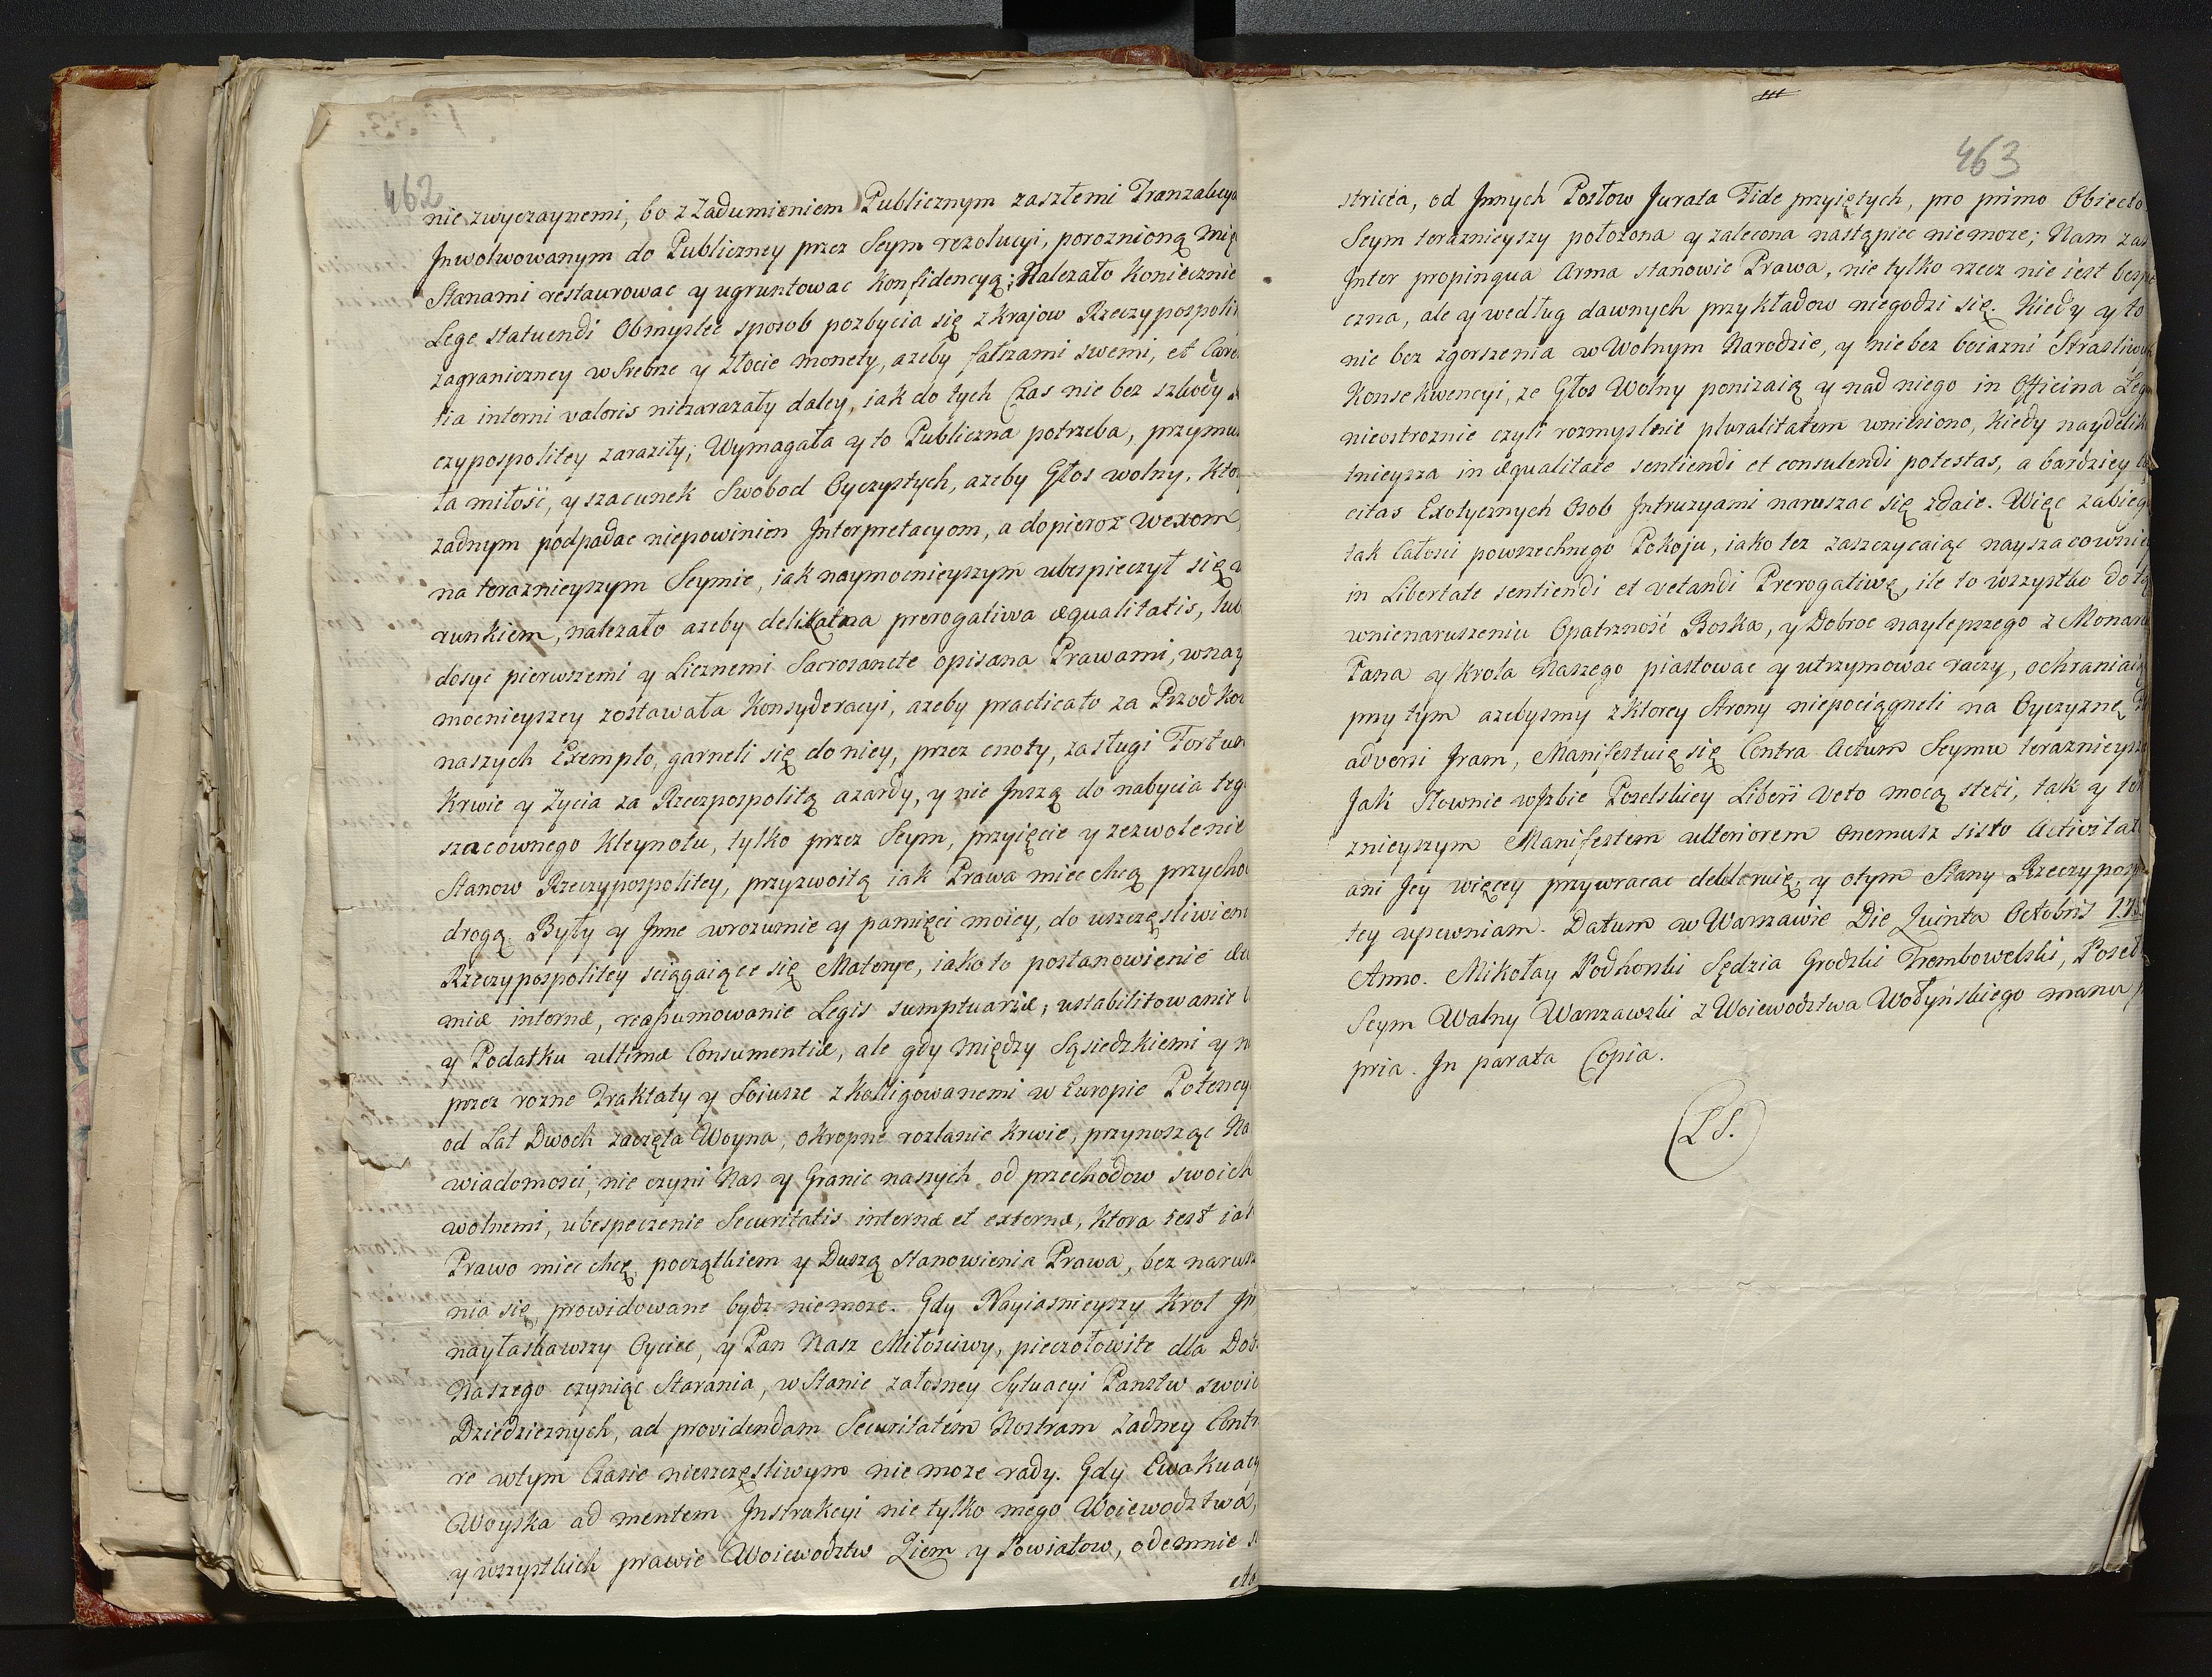 462
nie zwyczaynemi, bo z Zadumieniem Publicznym zaszłemi Tranzakcya
Jnwolwowanym do Publiczney przez Seym rezolucyi, poroznioną mię
Stanami restaurowac y ugruntowac Konfidencyą; Nalezało Koniecznie
Lege statuendi Obmyslec sposob pozbycia się z krajow Rzeczypospolit
zagraniczney w Srebrze y Złocie monety, azeby fałszami swemi, et Care
tia interni valoris niezarazały daley, iak do tych Czas nie bez szkody
czypospolitey zaraziły; Wymagała y to Publiczna potrzeba, przymu
ta miłość, y szacunek Swobod Oyczystych, azeby Głos wolny, kto
zadnym podpadac niepowinien Jnterpretacyom, a dopieroz wexom,
na teraznieyszym Seymie, iak naymocnieyszym ubespieczył się w
runkiem, nalezało azeby delikatna prerogatiwa æqualitatis, lub
dosyc pierwszemi y Licznemi Sacrosancte opisana Prawami, w nay
mocnieyszey zostawała Konsyderacyi, azeby practicato za Przodkow
naszych Exemplo, garneli się do niey, przez cnoty, zasługi Fortun
Krwie y Zycia za Rzeczpospolitą azardy, y nie Jnszą do nabycia teg
szacownego Kleynotu, tylko przez Seym, przyięcie y zezwolenie
Stanow Rzeczypospolitey, przyzwoitą iak Prawa miec chcą przycho
drogą. Były y Jnne w rozumie y pamięci moiey, do uszczęsliwien
Rzeczypospolitey sciągaiące się Materye, iako to postanowienie
miæ internæ, reassumowanie Legis sumptuariæ, ustabilitowanie
y Podatku ultimæ Consumentiæ, ale gdy między Sąsiedzkiemi y n
przez rozne Traktaty y Soiusze zkolligowanemi w Europie Potency
od Lat Dwoch zaczęta Woyna, okropne rozlanie krwie, przynosząc Na
wiadomosci, nie czyni Nas y Granic naszych od przechodow swoich
wolnemi, ubespeczenie Securitatis internæ et externæ, ktora iest iak
Prawo miec chcę, początkiem y Duszą Stanowienia Prawa, bez narusz
nia się, prowidowane bydz niemoze. Gdy Nayiasnieyszy Krol Jm
nayłaskawszy Oyciec, y Pan Nasz Miłosciwy, pieczołowite dla Dob
Naszego czyniąc Starania, w Stanie załosney Sytuacyi Panstw swoic
Dziedzicznych, ad providendam Securitatem Nostram zadney Contr
re w tym Czasie nieszczęsliwym nie moze rady. Gdy Ewakuacy
Woyska ad mentem Jnstrukcyi nie tylko mego Woiewodztwa,
y wszystkich prawie Woiewodztw Ziem y Powiatow, odemnie
463
stricta, od Jnnych Posłow Jurata Fide przyiętych, pro primo Obiecto
Seym teraznieyszy położona y zalecona nastąpiec niemoze; Nam zas
Jnter propinqua Arma stanowic Prawa, nie tylko rzecz nie iest bespie
czna, ale y według dawnych przykładow niegodzi się. Kiedy y to
nie bez zgorszenia w Wolnym Narodzie, y nie bez boiazni Strasliwych
Konsekwencyi, ze Głos Wolny ponizaią y nad niego in Officina Leg
nieostroznie czyli rozmyslnie pluralitatem wniesiono, kiedy naydelik
tnieysza in æqualitate sentiendi et consulendi potestas, a bardziey
citas Exotycznych Osob Jntruzyami naruszac się zdaie. Więc zabieg
tak Całosci powszechnego Pokoju, iako tez zaszczycaiąc nayszacownie
in Libertate sentiendi et vetandi Prerogatiwę, ile to wszystko dotą
w nienaruszeniu Opatrzność Boska, y Dobroc naylepszego z Monar
Pana y Krola Naszego piastowac y utrzymowac raczy, ochraniaią
przy tym azebysmy z ktorey Strony niepociągneli na Oyczyznę
adversi Jram, Manifestuię się Contra Actum Seymu teraznieysze
Jak Słownie w Jzbie Poselskiey Liberi Veto mocą steti, tak y te
znieyszym Manifestem ulteriorem onemusz sisto Activitat
ani Jey więcey przywracac deklaruię, y otym Stany Rzeczyposp
tey upewniam. Datum w Warszawie Die Quinta Octobris 175
Anno. Mikołay Podhorski Sędzia Grodzki Trembowelski, Poseł
Seym Walny Warszawski z Woiewodztwa Wołyńskiego manu p
pria. Jn parata Copia.
(L S.)